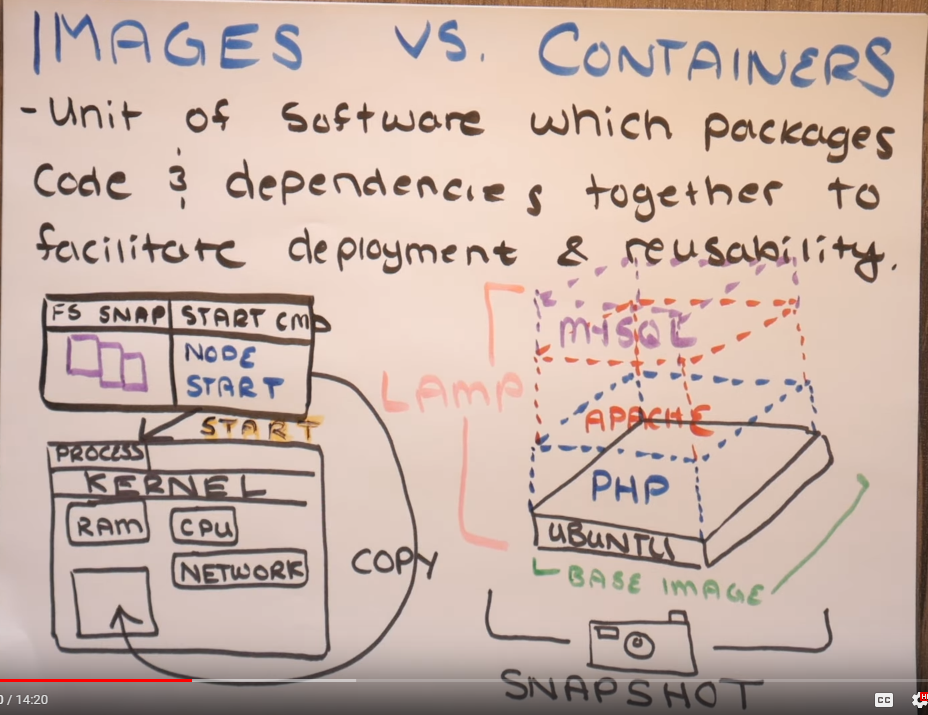 IMAGES VS. CONTAINERS
- Unit of software which packages
code & dependencies together to
facilitate deployment & reusability.
FS SNAP START CMD
NODE
START
START
PROCESS
KERNEL
RAM CPU
NETWORK
COPY
LAMP
MYSQL
APACHE
PHP
UBUNTU
BASE IMAGE
SNAPSHOT
0 / 14:20
CC